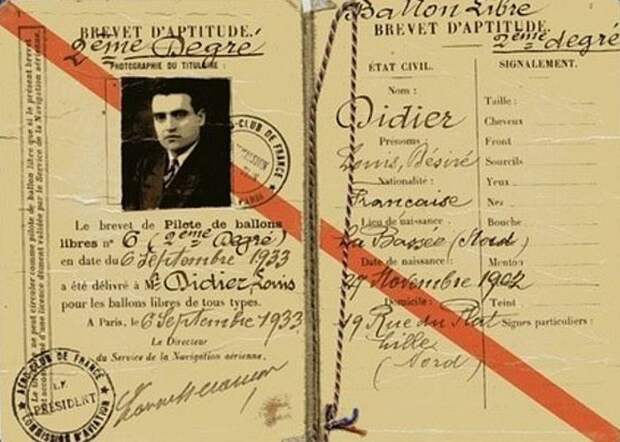 BREVET D'APTITUDE
2ème Degré
PHOTOGRAPHIE DU TITULAIRE :
AÉRO-CLUB DE FRANCE
PARIS
Le brevet de Pilote de ballons
libres n° 6 (2ème Degré)
en date du 6 Septembre 1933
a été délivré à Mr Didier, Louis
pour les ballons libres de tous types.
A Paris, le 6 Septembre 1933
Le Directeur
du Service de la Navigation aérienne.
AÉRO-CLUB DE FRANCE
LE
PRÉSIDENT
COMMISSION D'AVIATION
ne peut circuler comme pilote de ballon libre que si le présent brevet
d'une licence dûment validée par le Service de la Navigation aérienne.
Ballon Libre
BREVET D'APTITUDE
2ème degré
ÉTAT CIVIL.
Nom :
Didier
Prénoms
Louis, Désiré
Nationalité :
Française
Lieu de naissance
La Bassée (Nord)
Date de naissance :
27 Novembre 1902
Domicile :
19 Rue du Plat
Lille
(Nord)
SIGNALEMENT.
Taille :
Cheveux
Front
Sourcils
Yeux
Nez
Bouche
Menton
Teint
Signes particuliers :